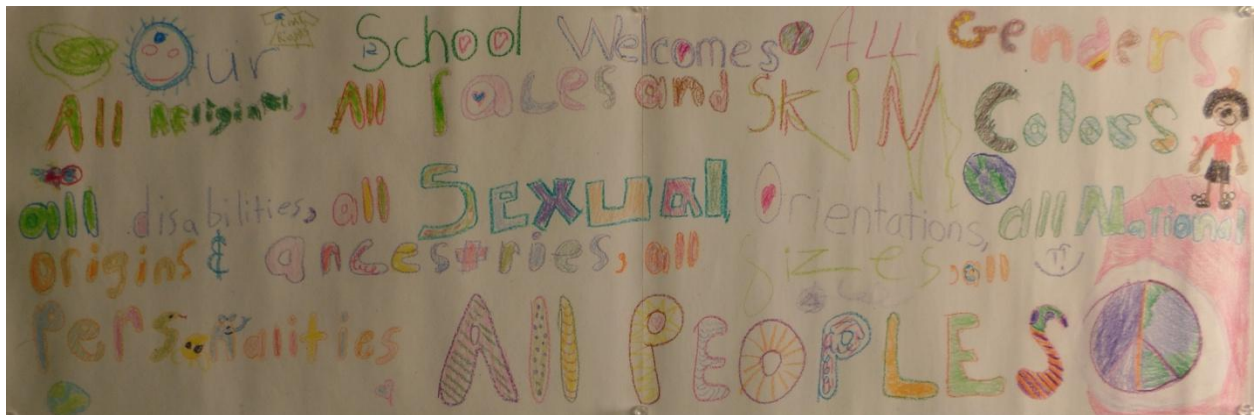 Our School Welcomes ALL Genders,
All Religions, All races and SKiN Colors
all disabilities, all Sexual Orientations, all National
origins & ancestries, all sizes, all
Personalities All PEOPLES